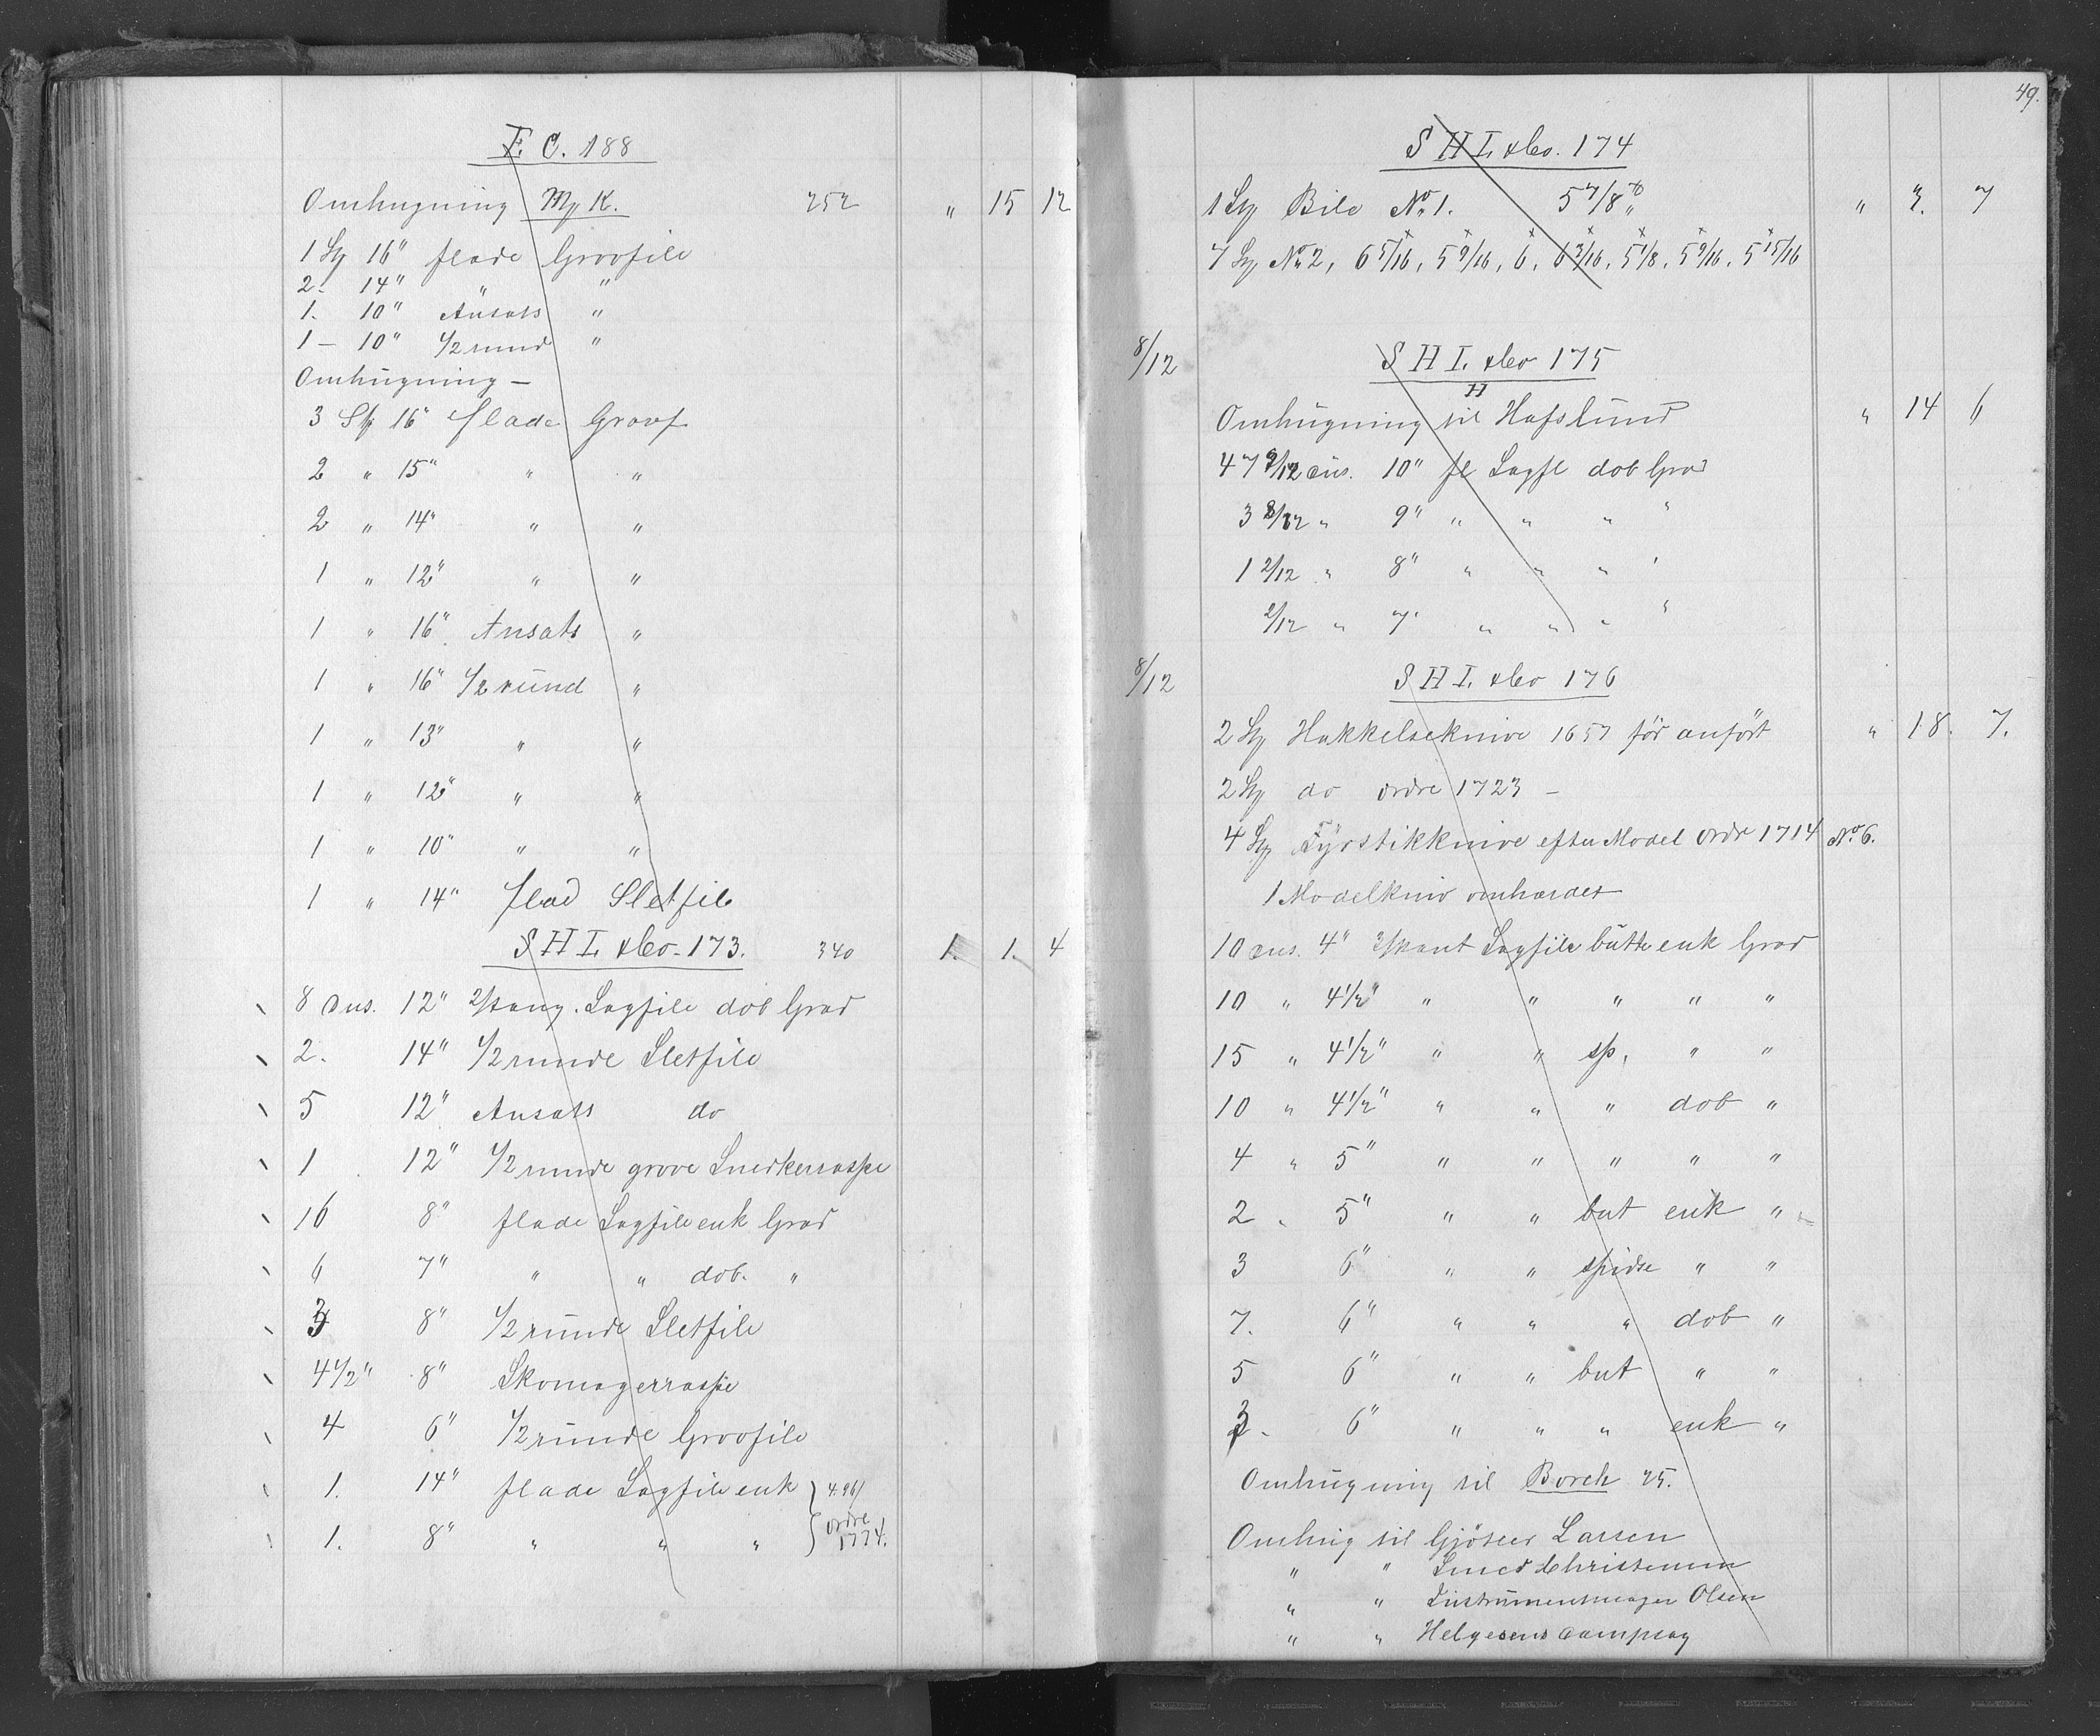 F. C. 188
Omhugning M, K. 252 " 15 12
1 St 16" flade Grovfile
2. 14" " "
1. 10" Ansats "
1 – 10" 1/2 rund "
Omhugning –
3 St 16" flade Grovf
2 " 15" " "
2 " 14" " "
1 " 12" " "
1 " 16" Ansats "
1 " 16" 1/2 rund "
1 " 13" " "
1 " 12" " "
1 " 10" " "
1 " 14" flad Sletfile
S H I. & Co. 173. 340 1. 1. 4
8 dus. 12" Sagfile dob Grad
2. 14" 1/2 runde Sletfile
5 12" Ansats do
1 12" 1/2 runde grove Snedkerraspe
16 8" flade Sagfile enk Grad
6 7" " " dob. "
3 8" 1/2 runde Sletfile
4 1/2" 8" Skomagerraspe
4 6" 1/2 runde Grovfile
1. 14" flade Sagfile enk
1. 8" " " " ordre 1774.
49.
S H I. & Co. 174
1 St Bile No 1. 5 7/8 " " 3. 7
7 St No 2, 6 5/16, 5 9/16, 6, 6 3/16, 5 1/8, 5 9/16, 5 15/16
8/12 S H I. & Co 175
H
Omhugning til Hafslund " 14 6
47 9/12 dus. 10" fl Sagfl dob Grad
3 8/12 " 9" " " " "
1 2/12 " 8" " " " "
2/12 " 7" " " " "
8/12 S H I. & Co 176
2 St Hakkelseknive 1657 før anført " 18. 7.
2 St do ordre 1723 –
4 St Fyrstikknive efter Model ordr 1714 No 6.
1 Modelkniv omhærdet
10 dus. 4" 3/kant Sagfile butte enk Grad
10 " 4 1/2" " " " " "
15 " 4 1/2" " " sp, " "
10 " 4 1/2" " " " dob "
4 " 5" " " " " "
2 " 5" " " but enk "
3 6" " " spidse " "
7. 6" " " " dob "
5 6" " " but " "
3. 6" " " " enk "
Omhugning til Borch 25.
Omhug til Gjørtler Larsen
" " Smed Christensen
" " Instrumentmager Olsen
" " Helgesens Dampsag